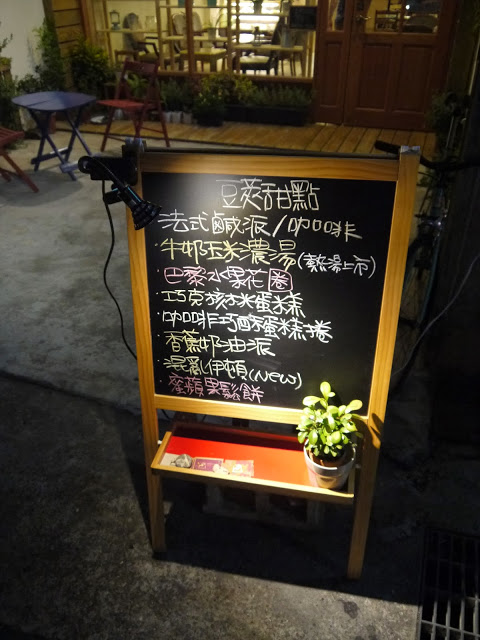 豆莢甜點
法式鹹派/咖啡
牛奶玉米濃湯(熱湯上市)
巴黎水果花圈
巧克核桃米蛋糕
咖啡巧酥蛋糕捲
香蕉奶油派
混亂伊頓(New)
蜜蘋果鬆餅